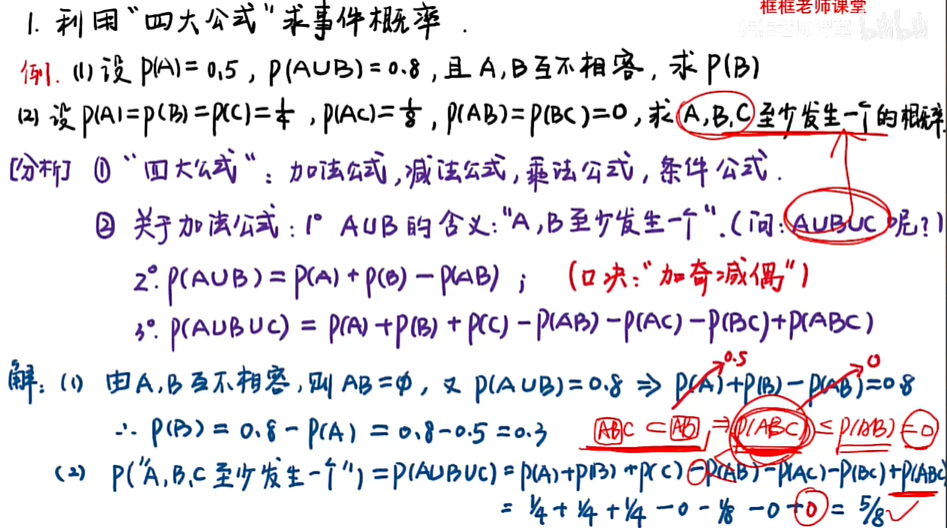 框框老师课堂
bilibili
1. 利用“四大公式”求事件概率.
例. (1) 设 P(A)=0.5, P(A∪B)=0.8, 且 A,B互不相容, 求 P(B)
(2) 设 P(A)=P(B)=P(C)=1/4, P(AC)=1/8, P(AB)=P(BC)=0, 求 A,B,C 至少发生一个的概率
[分析] ① “四大公式”: 加法公式, 减法公式, 乘法公式, 条件公式.
② 关于加法公式: 1° A∪B的含义: “A,B至少发生一个”. (问: A∪B∪C呢?)
2°. P(A∪B)=P(A)+P(B)-P(AB); (口决:“加奇减偶”)
3°. P(A∪B∪C)=P(A)+P(B)+P(C)-P(AB)-P(AC)-P(BC)+P(ABC)
0.5 0
解: (1) 由A,B互不相容, 则 AB=φ, 又 P(A∪B)=0.8 ⇒ P(A)+P(B)-P(AB)=0.8
∴ P(B)=0.8-P(A)=0.8-0.5=0.3 ABC⊂AB ⇒ P(ABC)≤P(AB)=0
(2) P(“A,B,C至少发生一个”)=P(A∪B∪C)=P(A)+P(B)+P(C)-P(AB)-P(AC)-P(BC)+P(ABC)
=1/4+1/4+1/4-0-1/8-0+0=5/8 ✓